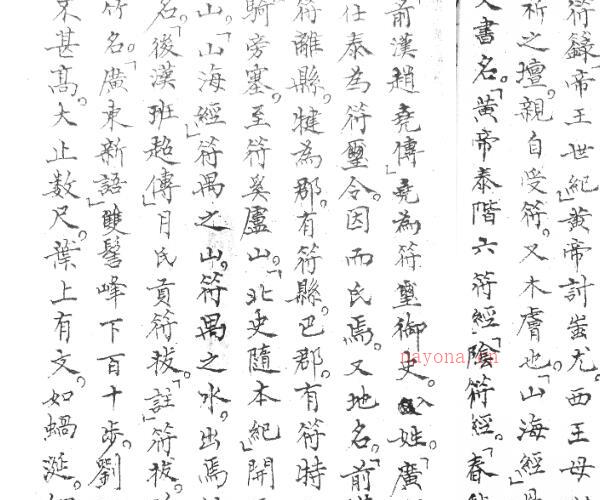 符籙帝王世紀」黃帝討蚩尤。西王母以
祈之壇。親自受符。又木膚也。「山海經」
文書名。「黃帝泰階六符經」「陰符經」「春
前漢趙堯傳」堯為符璽御史。又姓。「廣
仕秦為符璽令。因而氏焉。又地名。「前漢
符離縣。犍為郡。有符縣。巴郡。有符特
騎旁塞。至符奚廬山。「北史隨本紀」開
山。「山海經」符禺之山。符禺之水。出焉
名。「後漢班超傳」月氏貢符拔。「註」符拔
竹名。「廣東新語」雙髻峰下百十步。劉
木甚高。大止數尺。葉上有文。如蝸涎。
nayona.cn